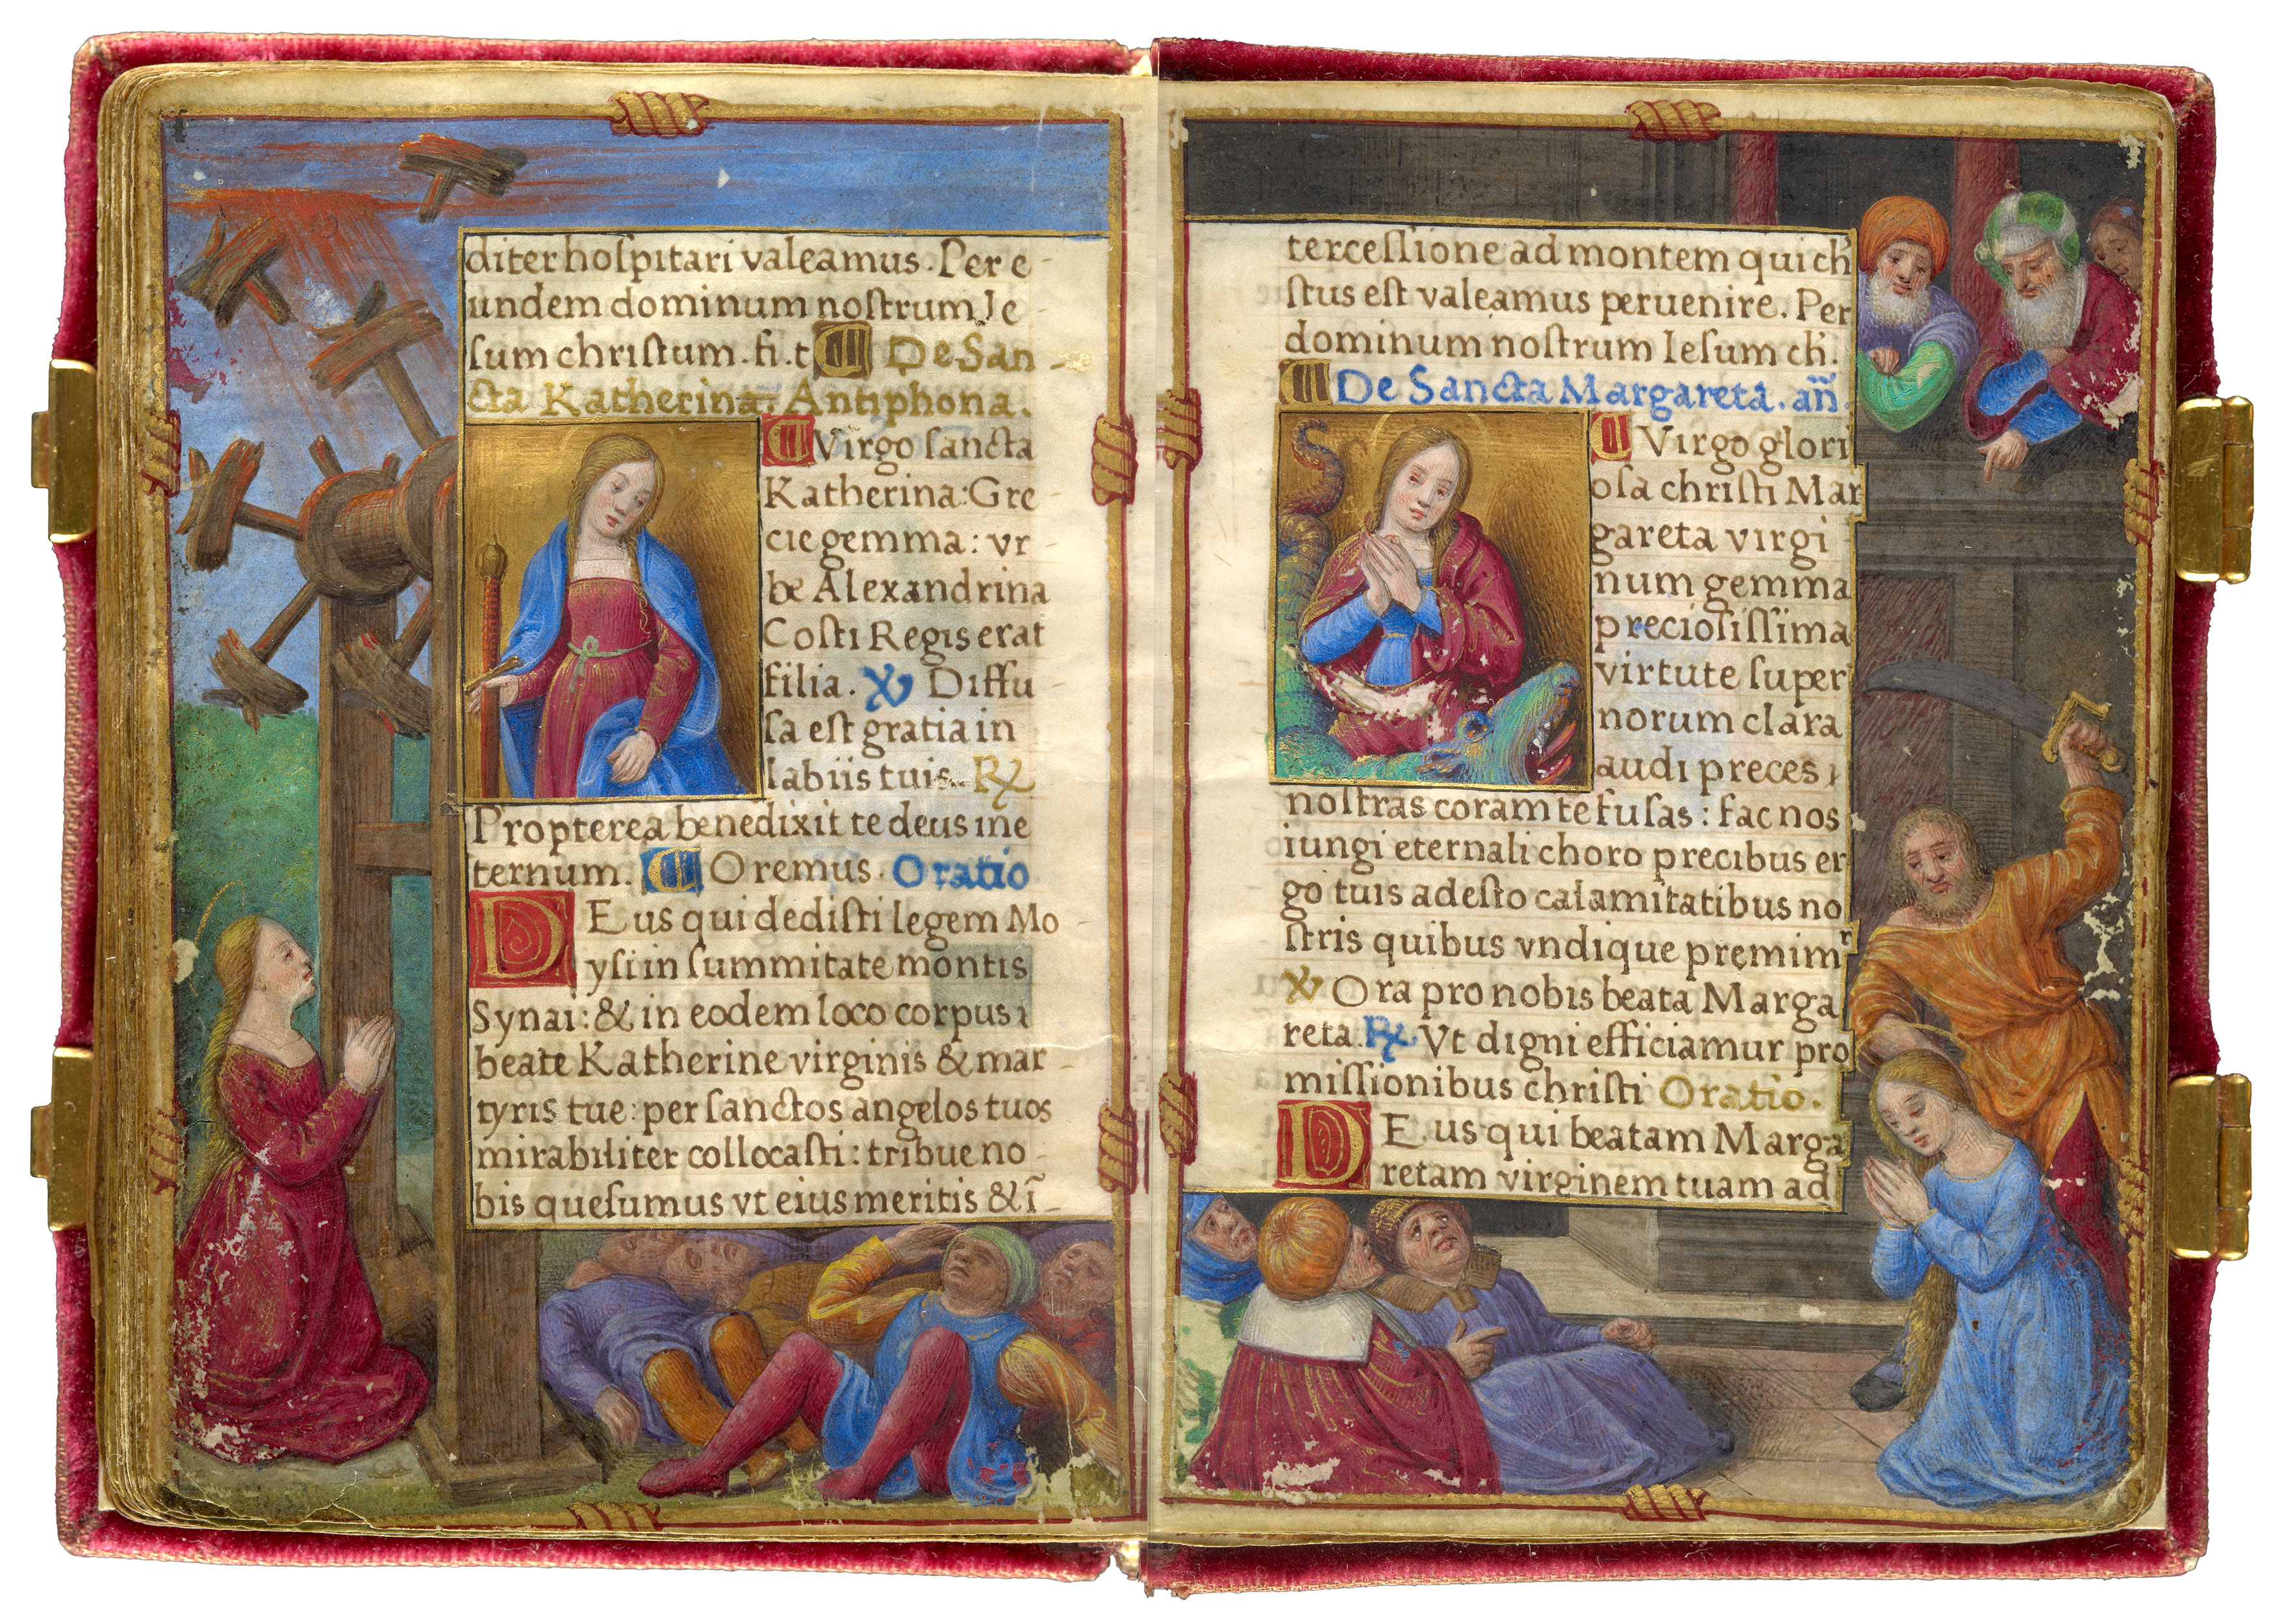 diter hoſpitari valeamus. Per e-
undem dominum noſtrum Je
ſum chriſtum. fi. t ¶ De San-
cta Katherina. Antiphona.
¶ Virgo ſancta
Katherina: Gre
cie gemma: vr
be Alexandrina
Coſti Regis erat
filia. ℣ Diffu
ſa eſt gratia in
labiis tuis. ℟
Propterea benedixit te deus in e
ternum. ¶ Oremus. Oratio
DEus qui dediſti legem Mo
yſi in ſummitate montis
Synai: & in eodem loco corpus
beate Katherine virginis & mar-
tyris tue: per ſanctos angelos tuos
mirabiliter collocaſti: tribue no-
bis queſumus vt eius meritis & ī-
terceſſione ad montem qui ch̄
ſtus eſt valeamus peruenire. Per
dominum noſtrum Ieſum ch̄.
¶ De Sancta Margareta. añ.
¶ Virgo glori
oſa chriſti Mar
gareta virgi
num gemma
precioſiſſima
virtute ſuper
norum clara
audi preces
noſtras coram te fuſas: fac nos
iungi eternali choro precibus er
go tuis adeſto calamitatibus no
ſtris quibus vndique premimʳ
℣ Ora pro nobis beata Marga
reta. ℟ Vt digni efficiamur pro
miſſionibus chriſti Oratio.
DEus qui beatam Marga
retam virginem tuam ad